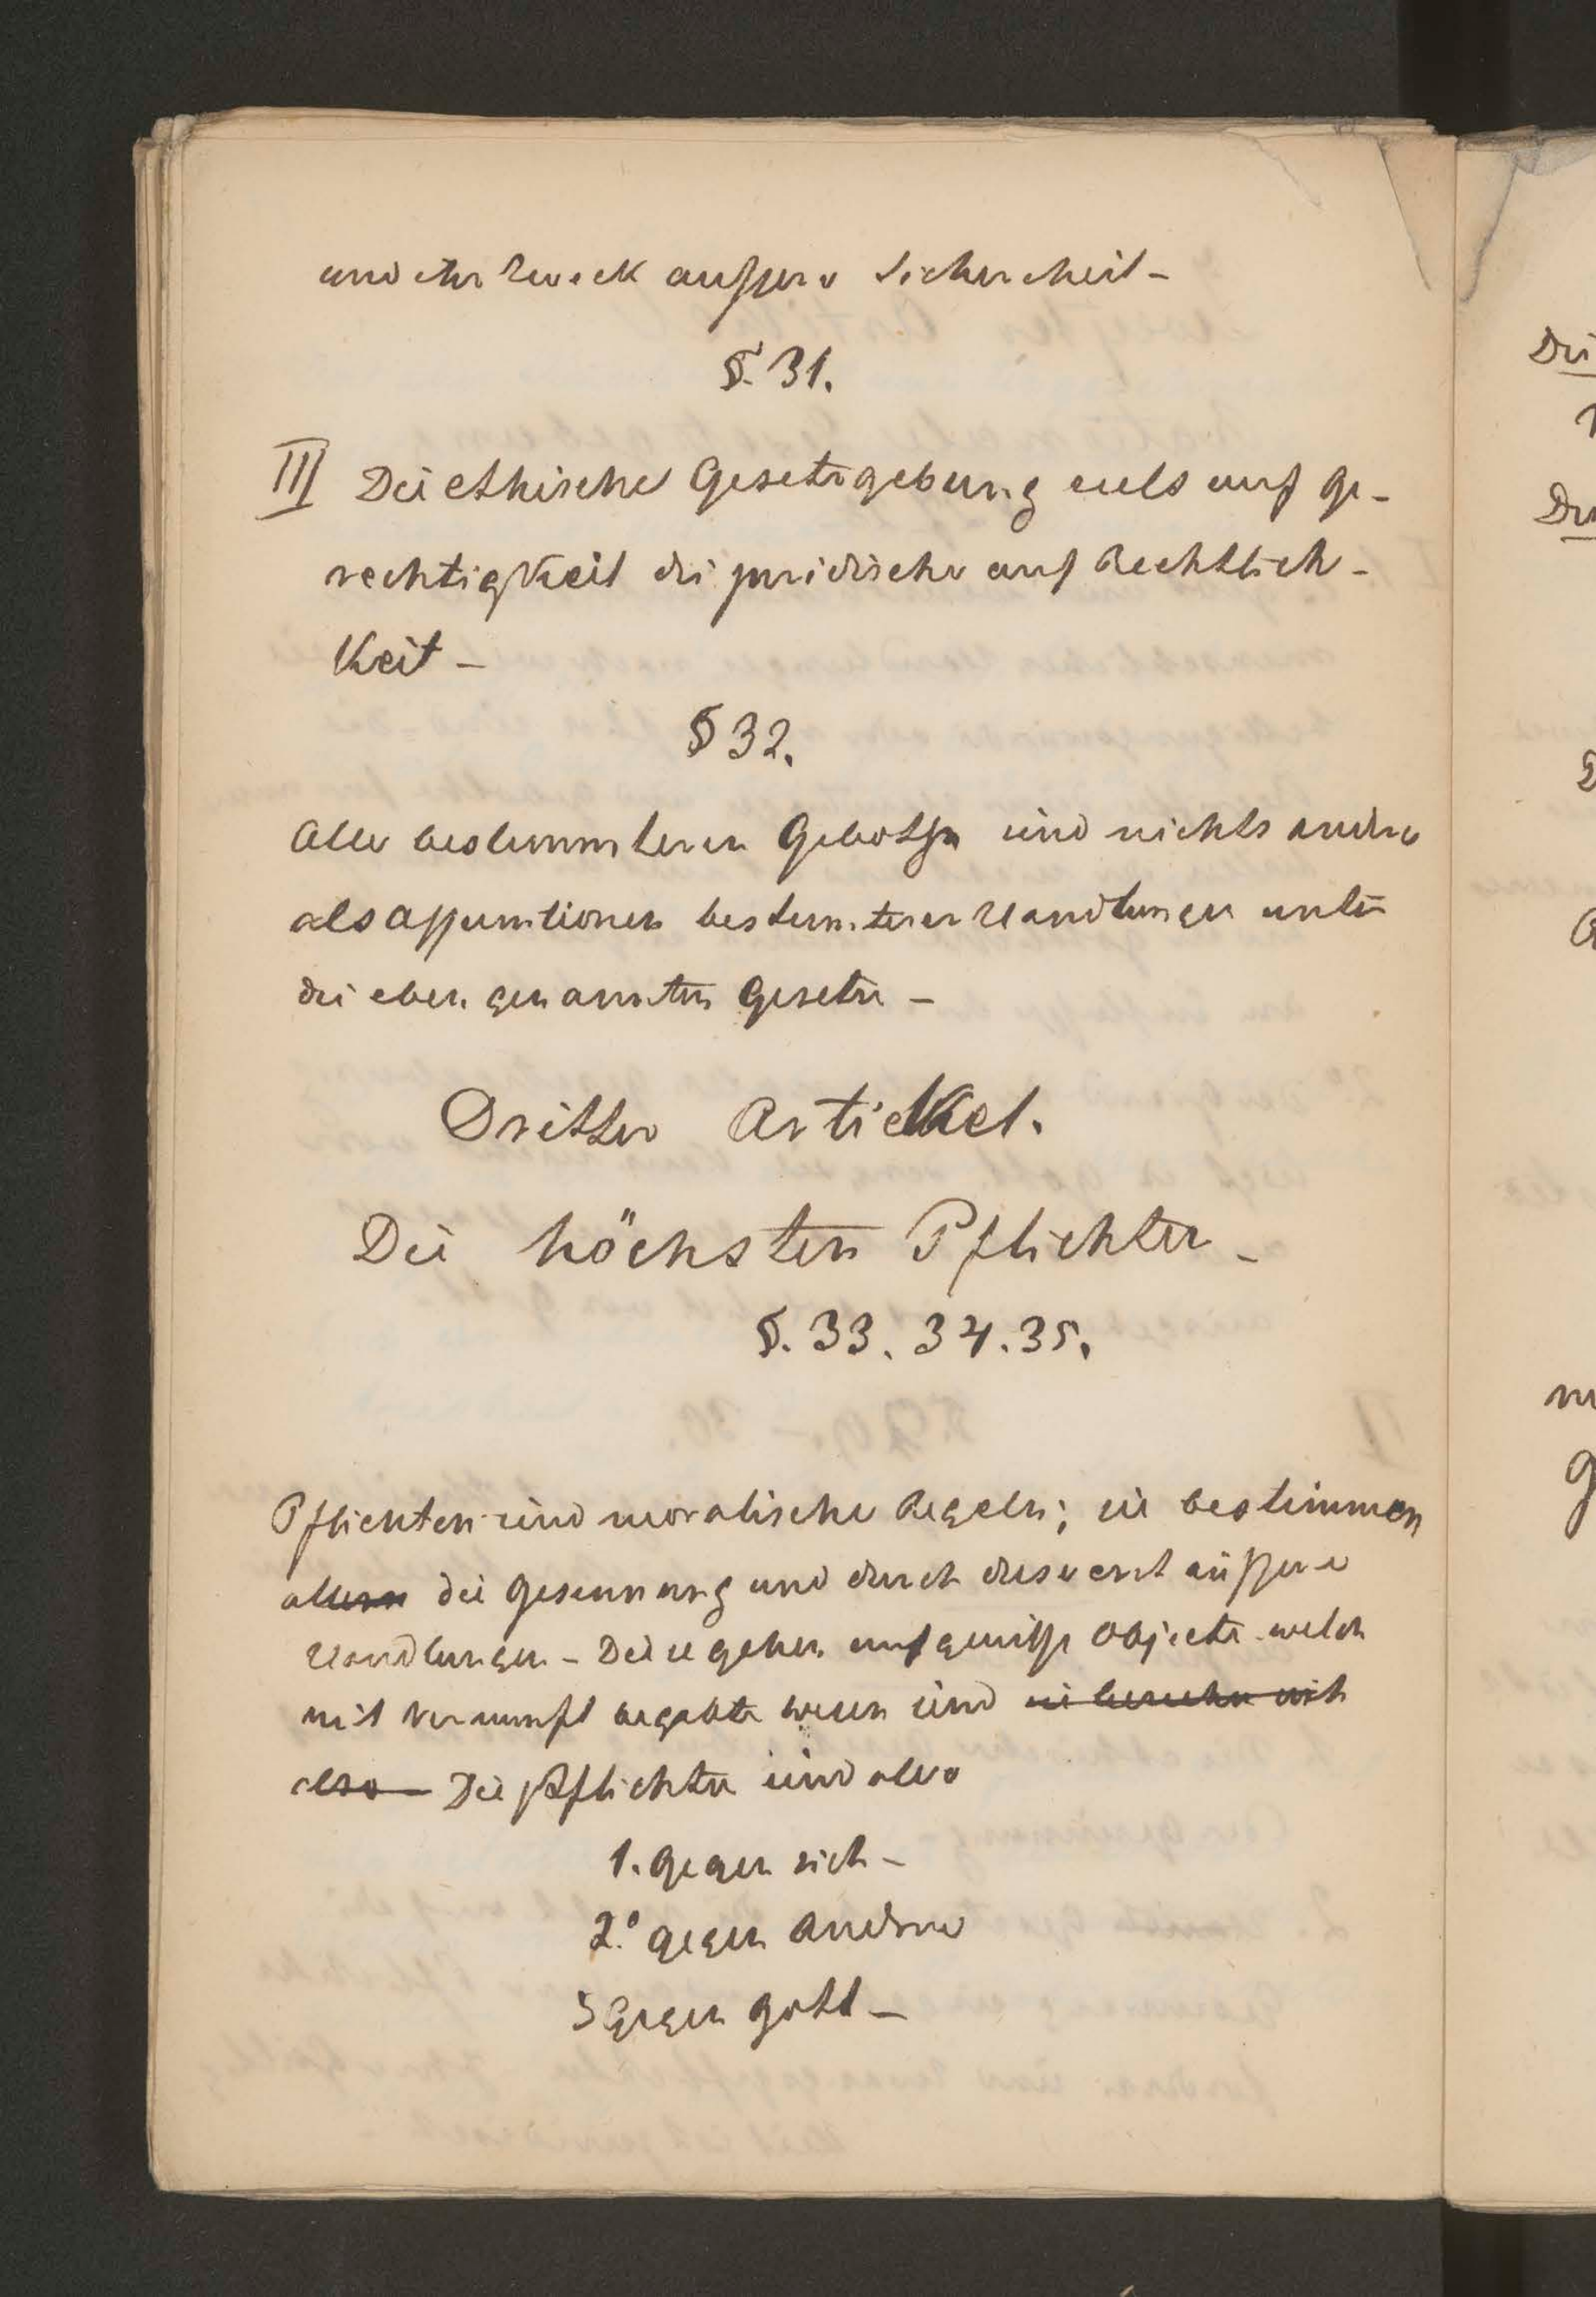 und ihr Zweck aüssere Sicherheit –
§. 31.
III Die ethische Gesetzgebung auf Ge-
rechtigkeit die juridische auf Rechtlich-
keit –
§ 32.
Alle bestimmteren Gebothe sind nichts andre
als assumtionen bestimterer Handlungen unter
die eben genannten Gesetze –
Dritter Artickel.
Die höchsten Pflichten –
§. 33. 34. 35.
Pflichten sind moralische Regeln; sie bestimmen
die Gesinnung und durch diese erst aüssere
Handlungen – Diese gehen auf gewisse Objecte welch
mit Vernunft begabte wesen sind
also – Die Pflichten sind also
1. gegen sich –
2.° gegen Andre
3 Gegen gott –
Die
Die